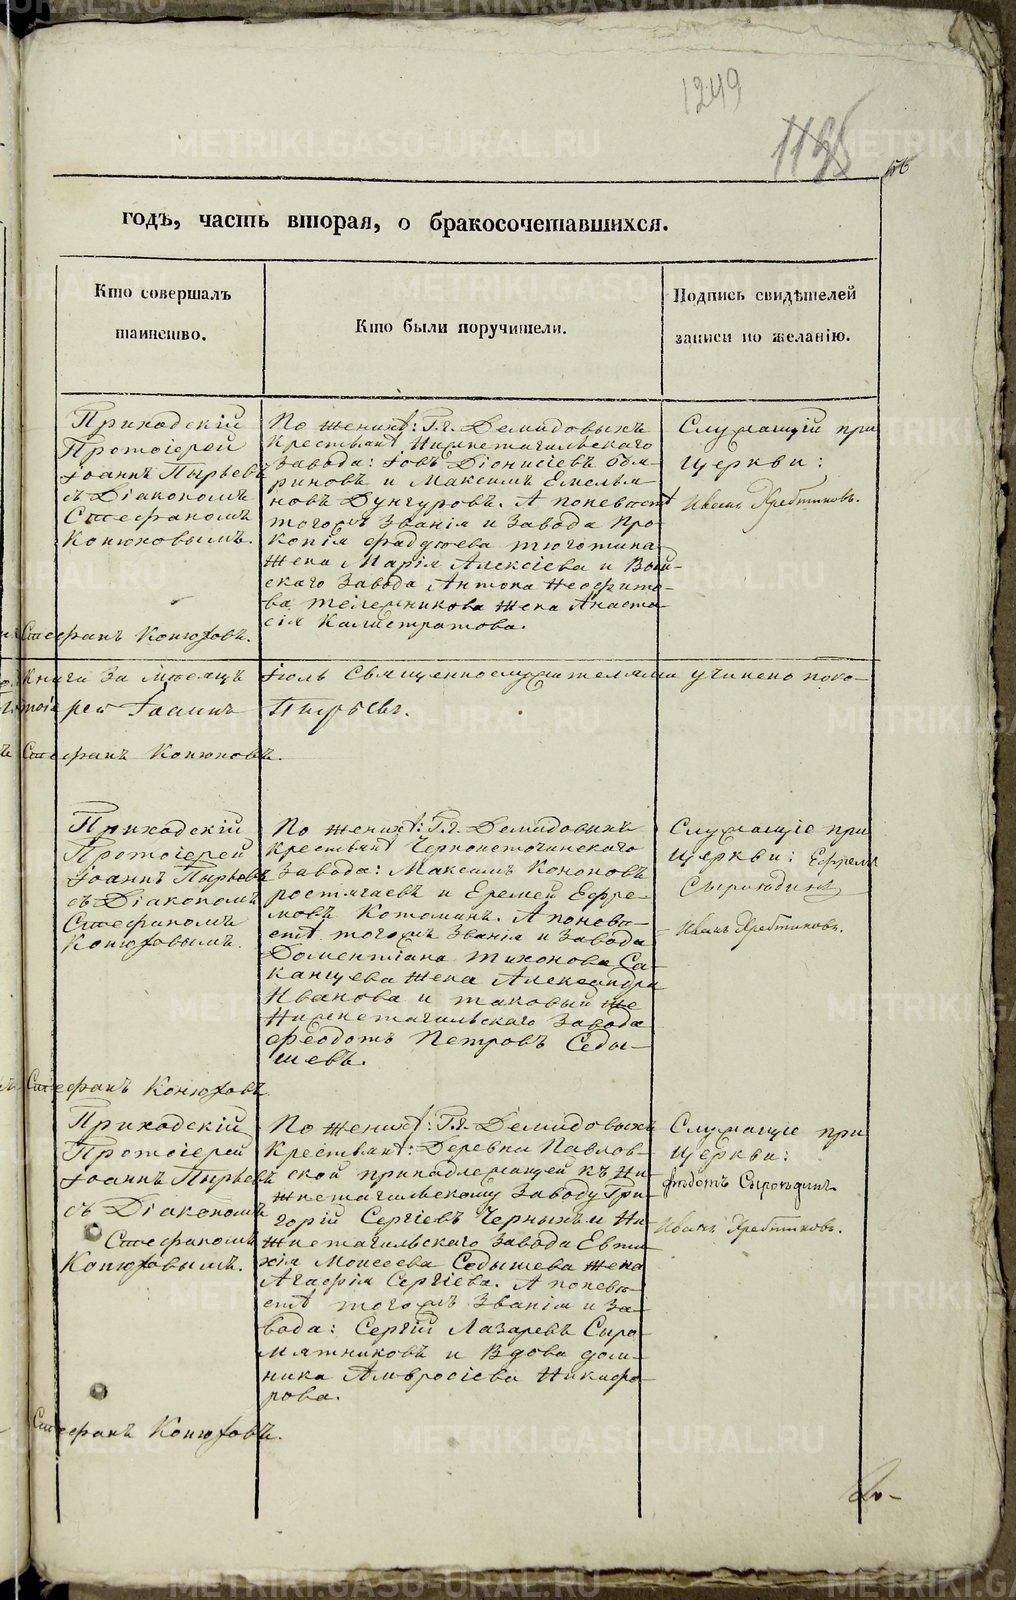 1249
1135
годъ, часть вторая, о бракосочетавшихся.
Кто совершалъ
таинство.
Кто были поручители.
Подпись свидѣтелей
записи по желанію.
Приходскій
Протоіерей
Іоаннъ Пырьевъ
съ Діакономъ
Стефаномъ
Конюховымъ.
По женихѣ: Г.г. Демидовыхъ
Крестьянѣ Нижнетагильскаго
Завода: Іовъ Діонисіевъ
риновъ и Максимъ Емелья-
новъ Дунгуровъ. А поневѣстѣ
тогожъ Званія и Завода Про-
копія Фадѣева
жена Марія Алексіева и Вый-
скаго Завода Антона Неофито-
ва жена Анаста-
сія Калистратова.
Служащій при
Церкви:
Иванъ Хребтиковъ.
Стефанъ Конюховъ.
Книги За мѣсяцъ Іюль Священнослужителями учинено пово-
рей Іоаннъ Пырьевъ.
Стефанъ Конюховъ.
Приходскій
Протоіерей
Іоаннъ Пырьевъ
съ Діакономъ
Стефаномъ
Конюховымъ.
По женихѣ: Г.г. Демидовыхъ
крестьянѣ Черноисточинскаго
Завода: Максимъ Кононовъ
ростягаевъ и Еремей Ефре-
мовъ Котоминъ. А поневѣ-
стѣ тогожъ Званія и Завода
Доментіана Тихонова Са-
канцева жена Александра
Иванова и таковый же
Нижнетагильскаго Завода
Феодотъ Петровъ Седы-
шевъ.
Служащіе при
Церкви: Ефремъ
Сыроѣдинъ
Иванъ Хребтиковъ.
Стефанъ Конюховъ.
Приходскій
Протоіерей
Іоаннъ Пырьевъ
съ Діакономъ
Стефаномъ
Конюховымъ.
По женихѣ: Г.г. Демидовыхъ
Крестьянѣ: Деревни Павлов-
ской принадлежащей къ Ни-
жнетагильскому Заводу Гри-
горій Сергіевъ Черныхъ и Ни-
жнетагильскаго Завода Евти-
хія Моисеева Седышева жена
Агафія Сергіева. А поневѣ-
стѣ тогожъ Званія и За-
вода: Сергій Лазаревъ Сыро-
мятниковъ и Вдова дом-
ника Амвросіева Никифо-
рова.
Служащіе при
Церкви:
Федотъ Сыроѣдинъ
Иванъ Хребтиковъ.
Стефанъ Конюховъ.
METRIKI.GASO-URAL.RU